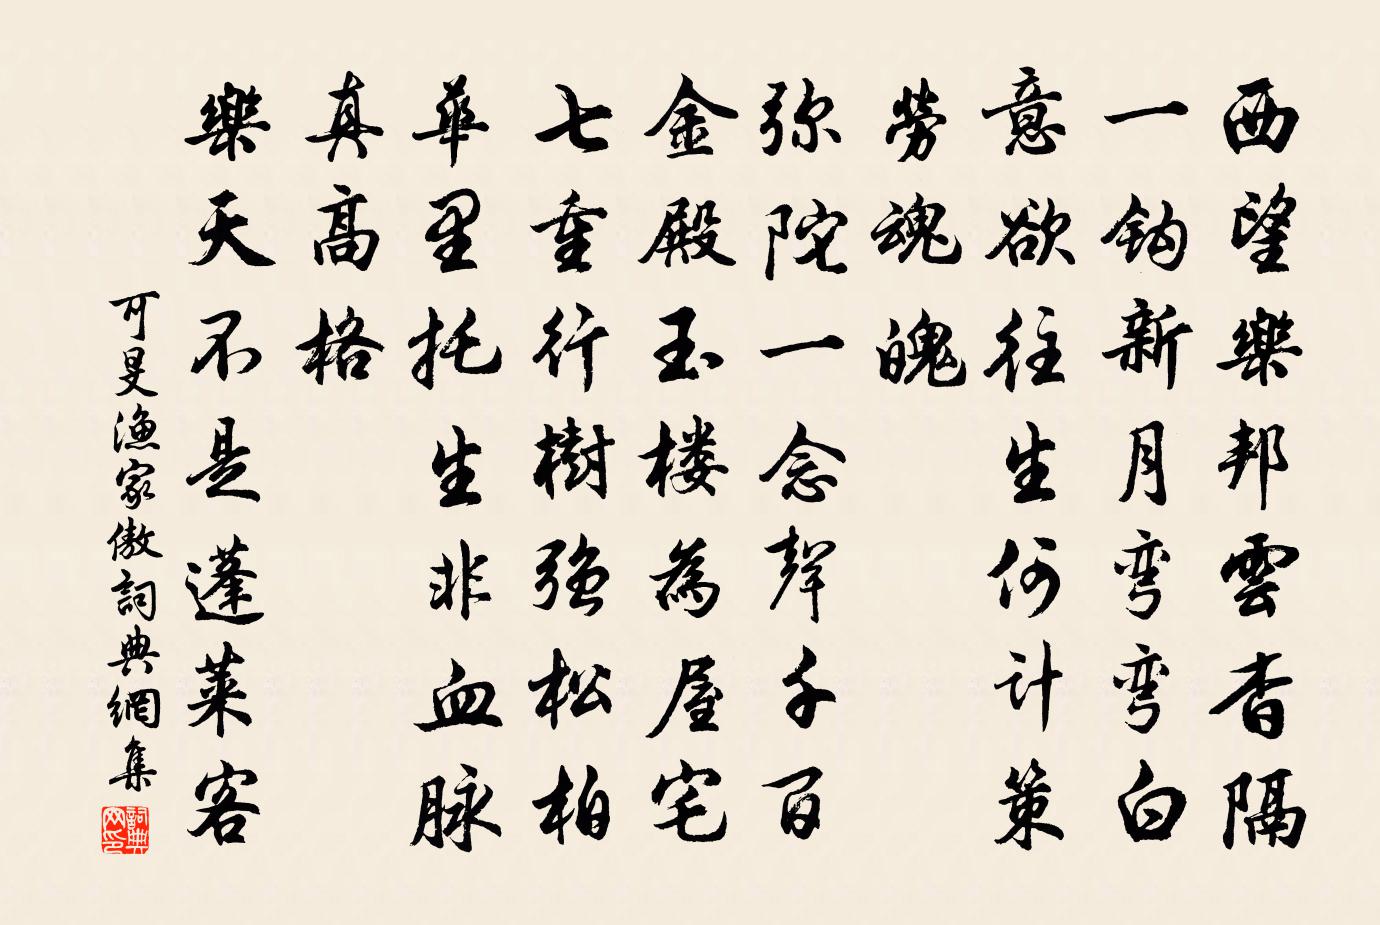 西望樂邦雲杳隔
一鈎新月弯弯白
意欲往生何计策
勞魂魄
弥陀一念聲千百
金殿玉楼為屋宅
七重行樹強松柏
華里托生非血脉
真高格
樂天不是蓬莱客
可旻漁家傲詞典網集
詞典
网印